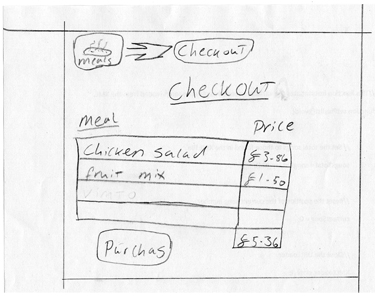 meals Checkout
Checkout
meal Price
Chicken salad £3.86
fruit mix £1.50
£5.36
Purchas